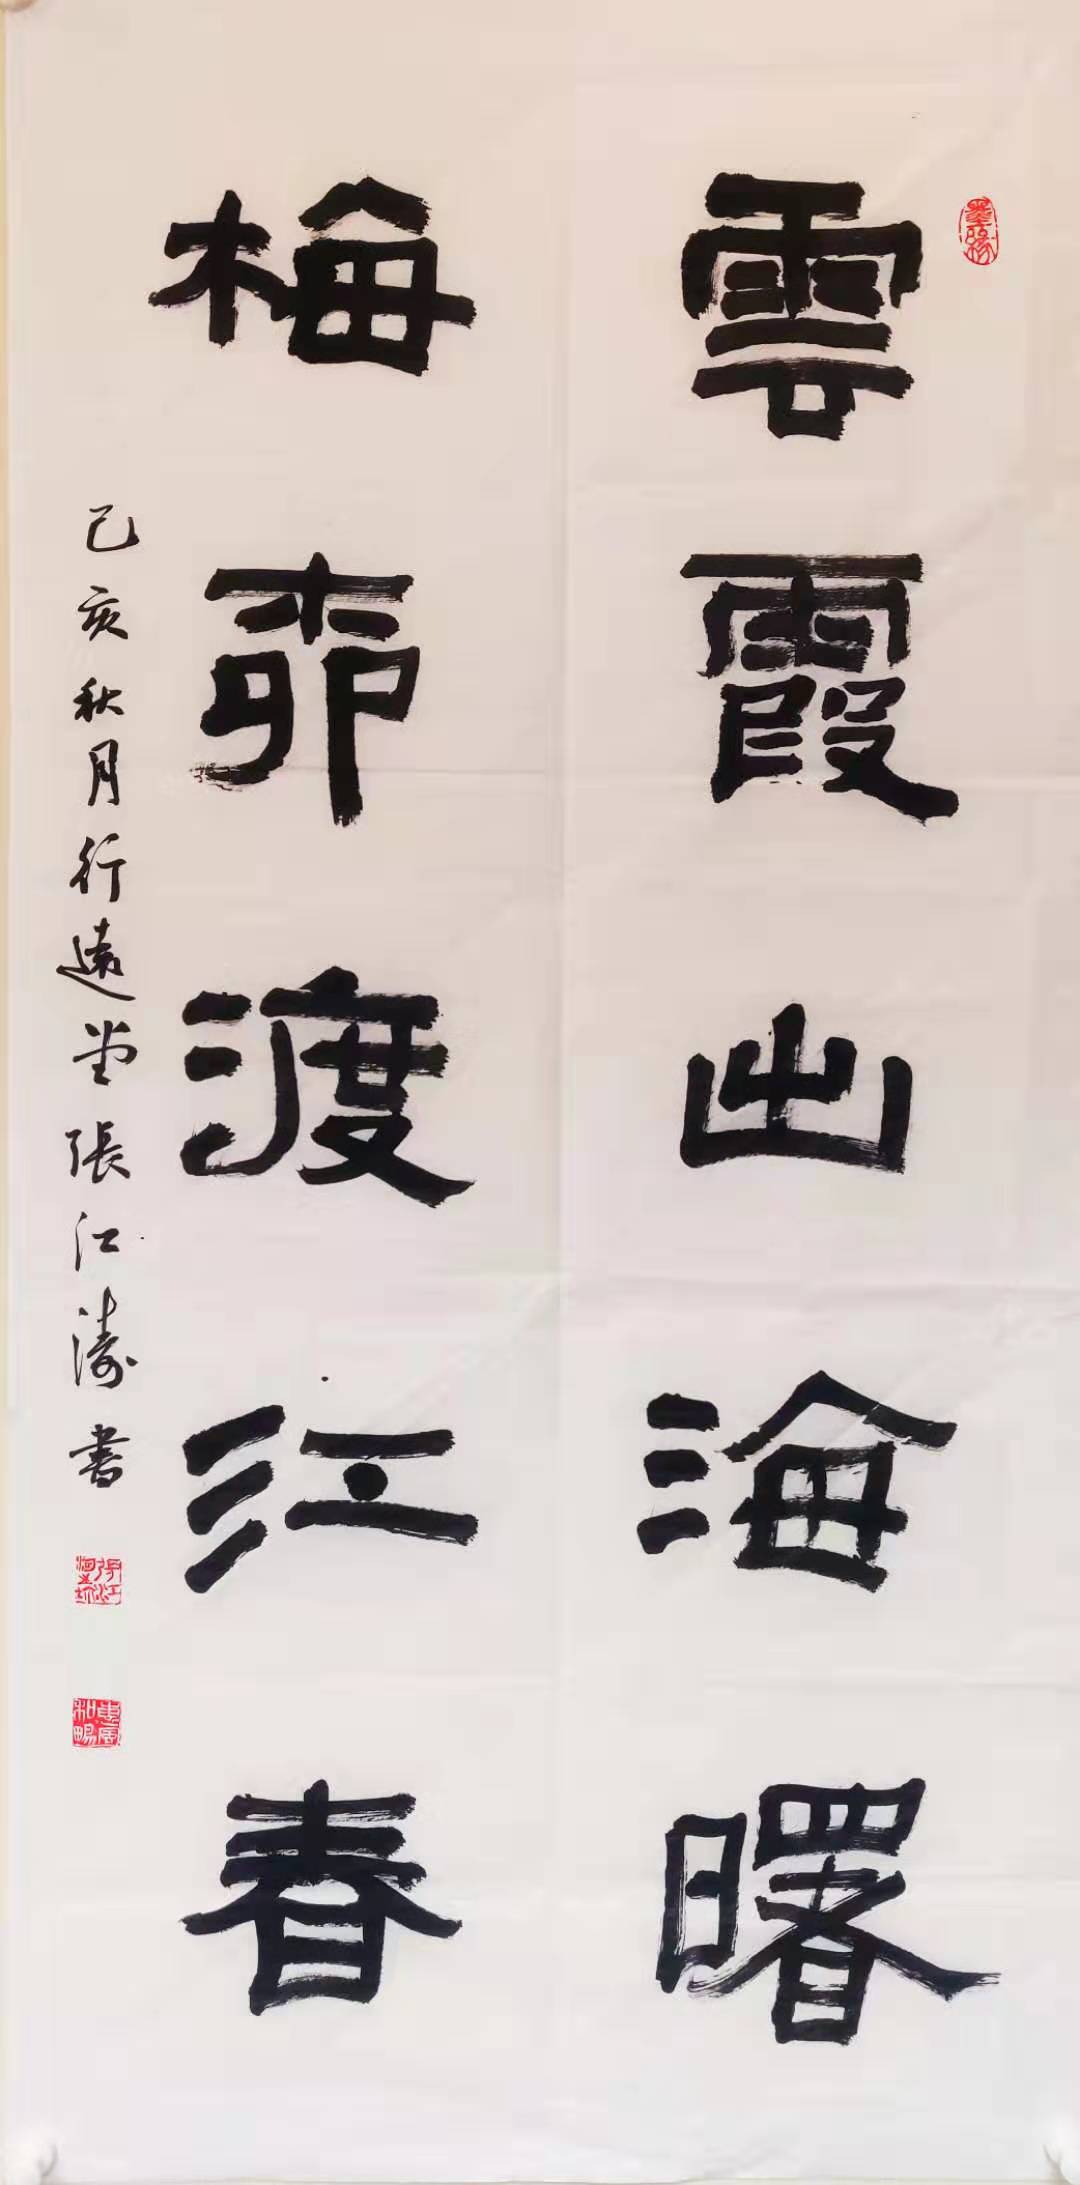 墨緣
雲霞出海曙
梅柳渡江春
己亥秋月行遠堂張江濤書